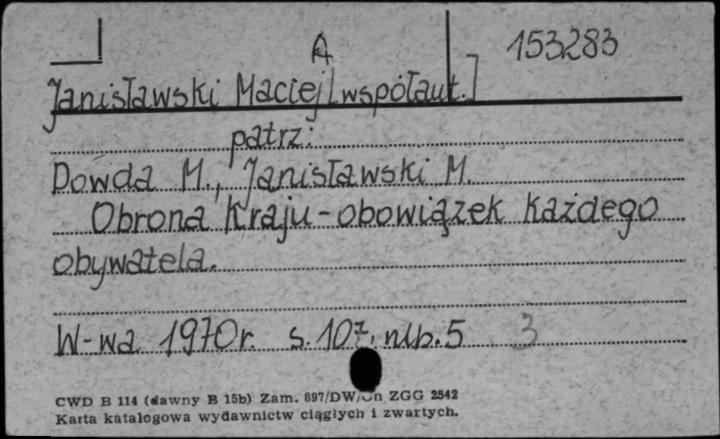 A 153283
Janisławski Maciej [współaut.]
patrz:
Dowda M., Janisławski M.
Obrona Kraju - obowiązek każdego
obywatela.
W-wa 1970r. s. 107, nlb. 5 3
CWD B 114 (dawny B 15b) Zam. 897/DW/ ZGG 2542
Karta katalogowa wydawnictw ciągłych i zwartych.